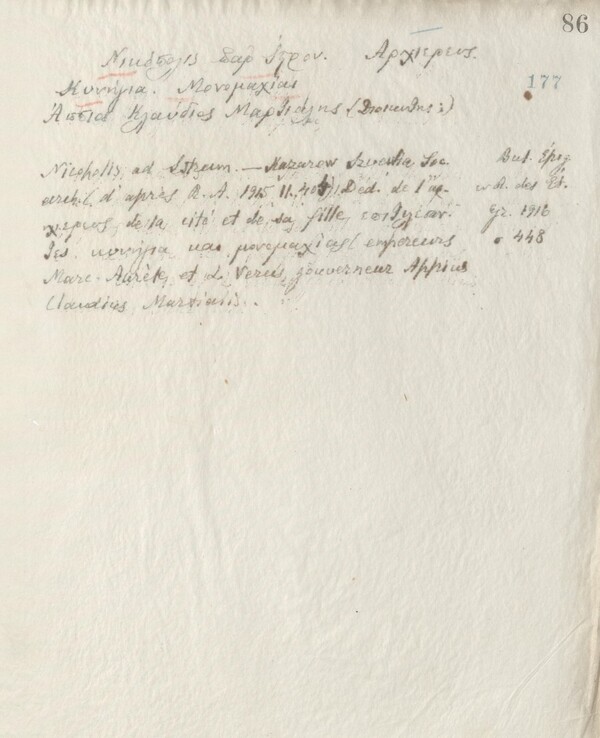 86
Νικόπολις παρ Ίστρον. Αρχιερευς.
177
Κυνήγια. Μονομαχίας
Αππιος Κλαύδιος Μαρτιάλης
Nicopolis ad Istrum. — Kazarow Izvestia Soc
archl, d'après R. A. 1915 II, Déd. de l'αρ-
χιερευς de la cité et de sa fille, επιτελεσαν-
τες κυνήγια και μονομαχίας (empereurs
Marc-Aurèle et L. Verus, gouverneur Appius
Claudius Martialis.
Bul. Épig
R. des Ét.
gr. 1916
448